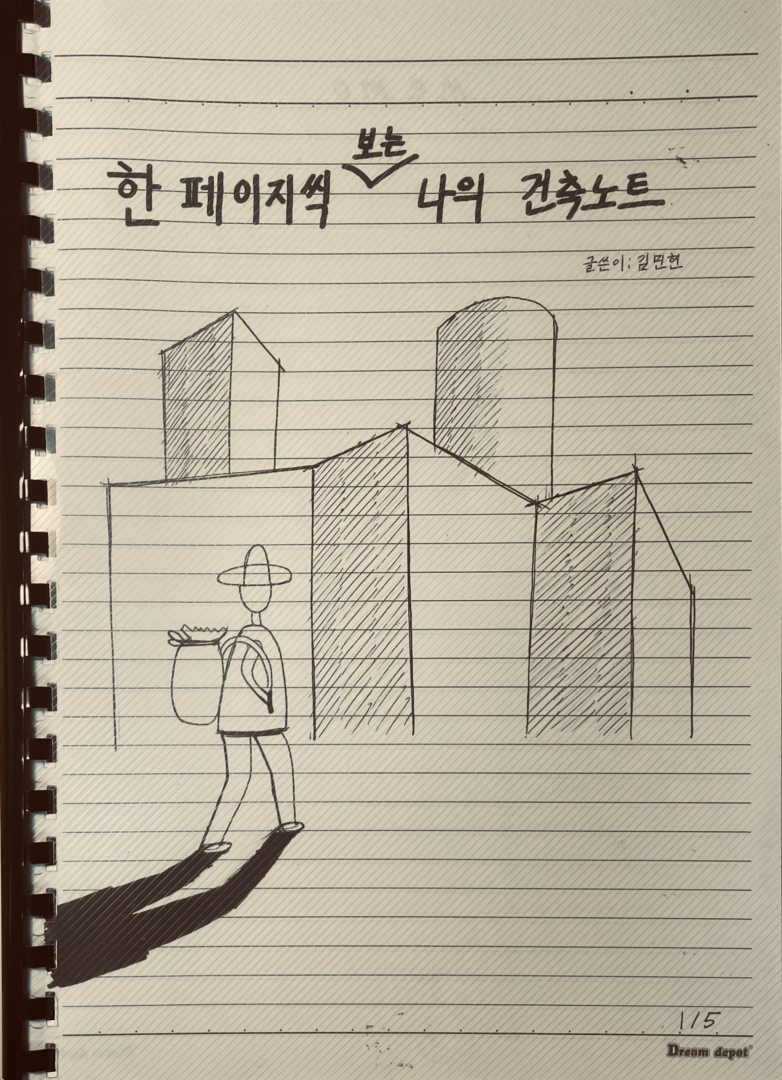 보는
한 페이지씩 나의 건축노트
글쓴이: 김민현
1/5
Dream depot